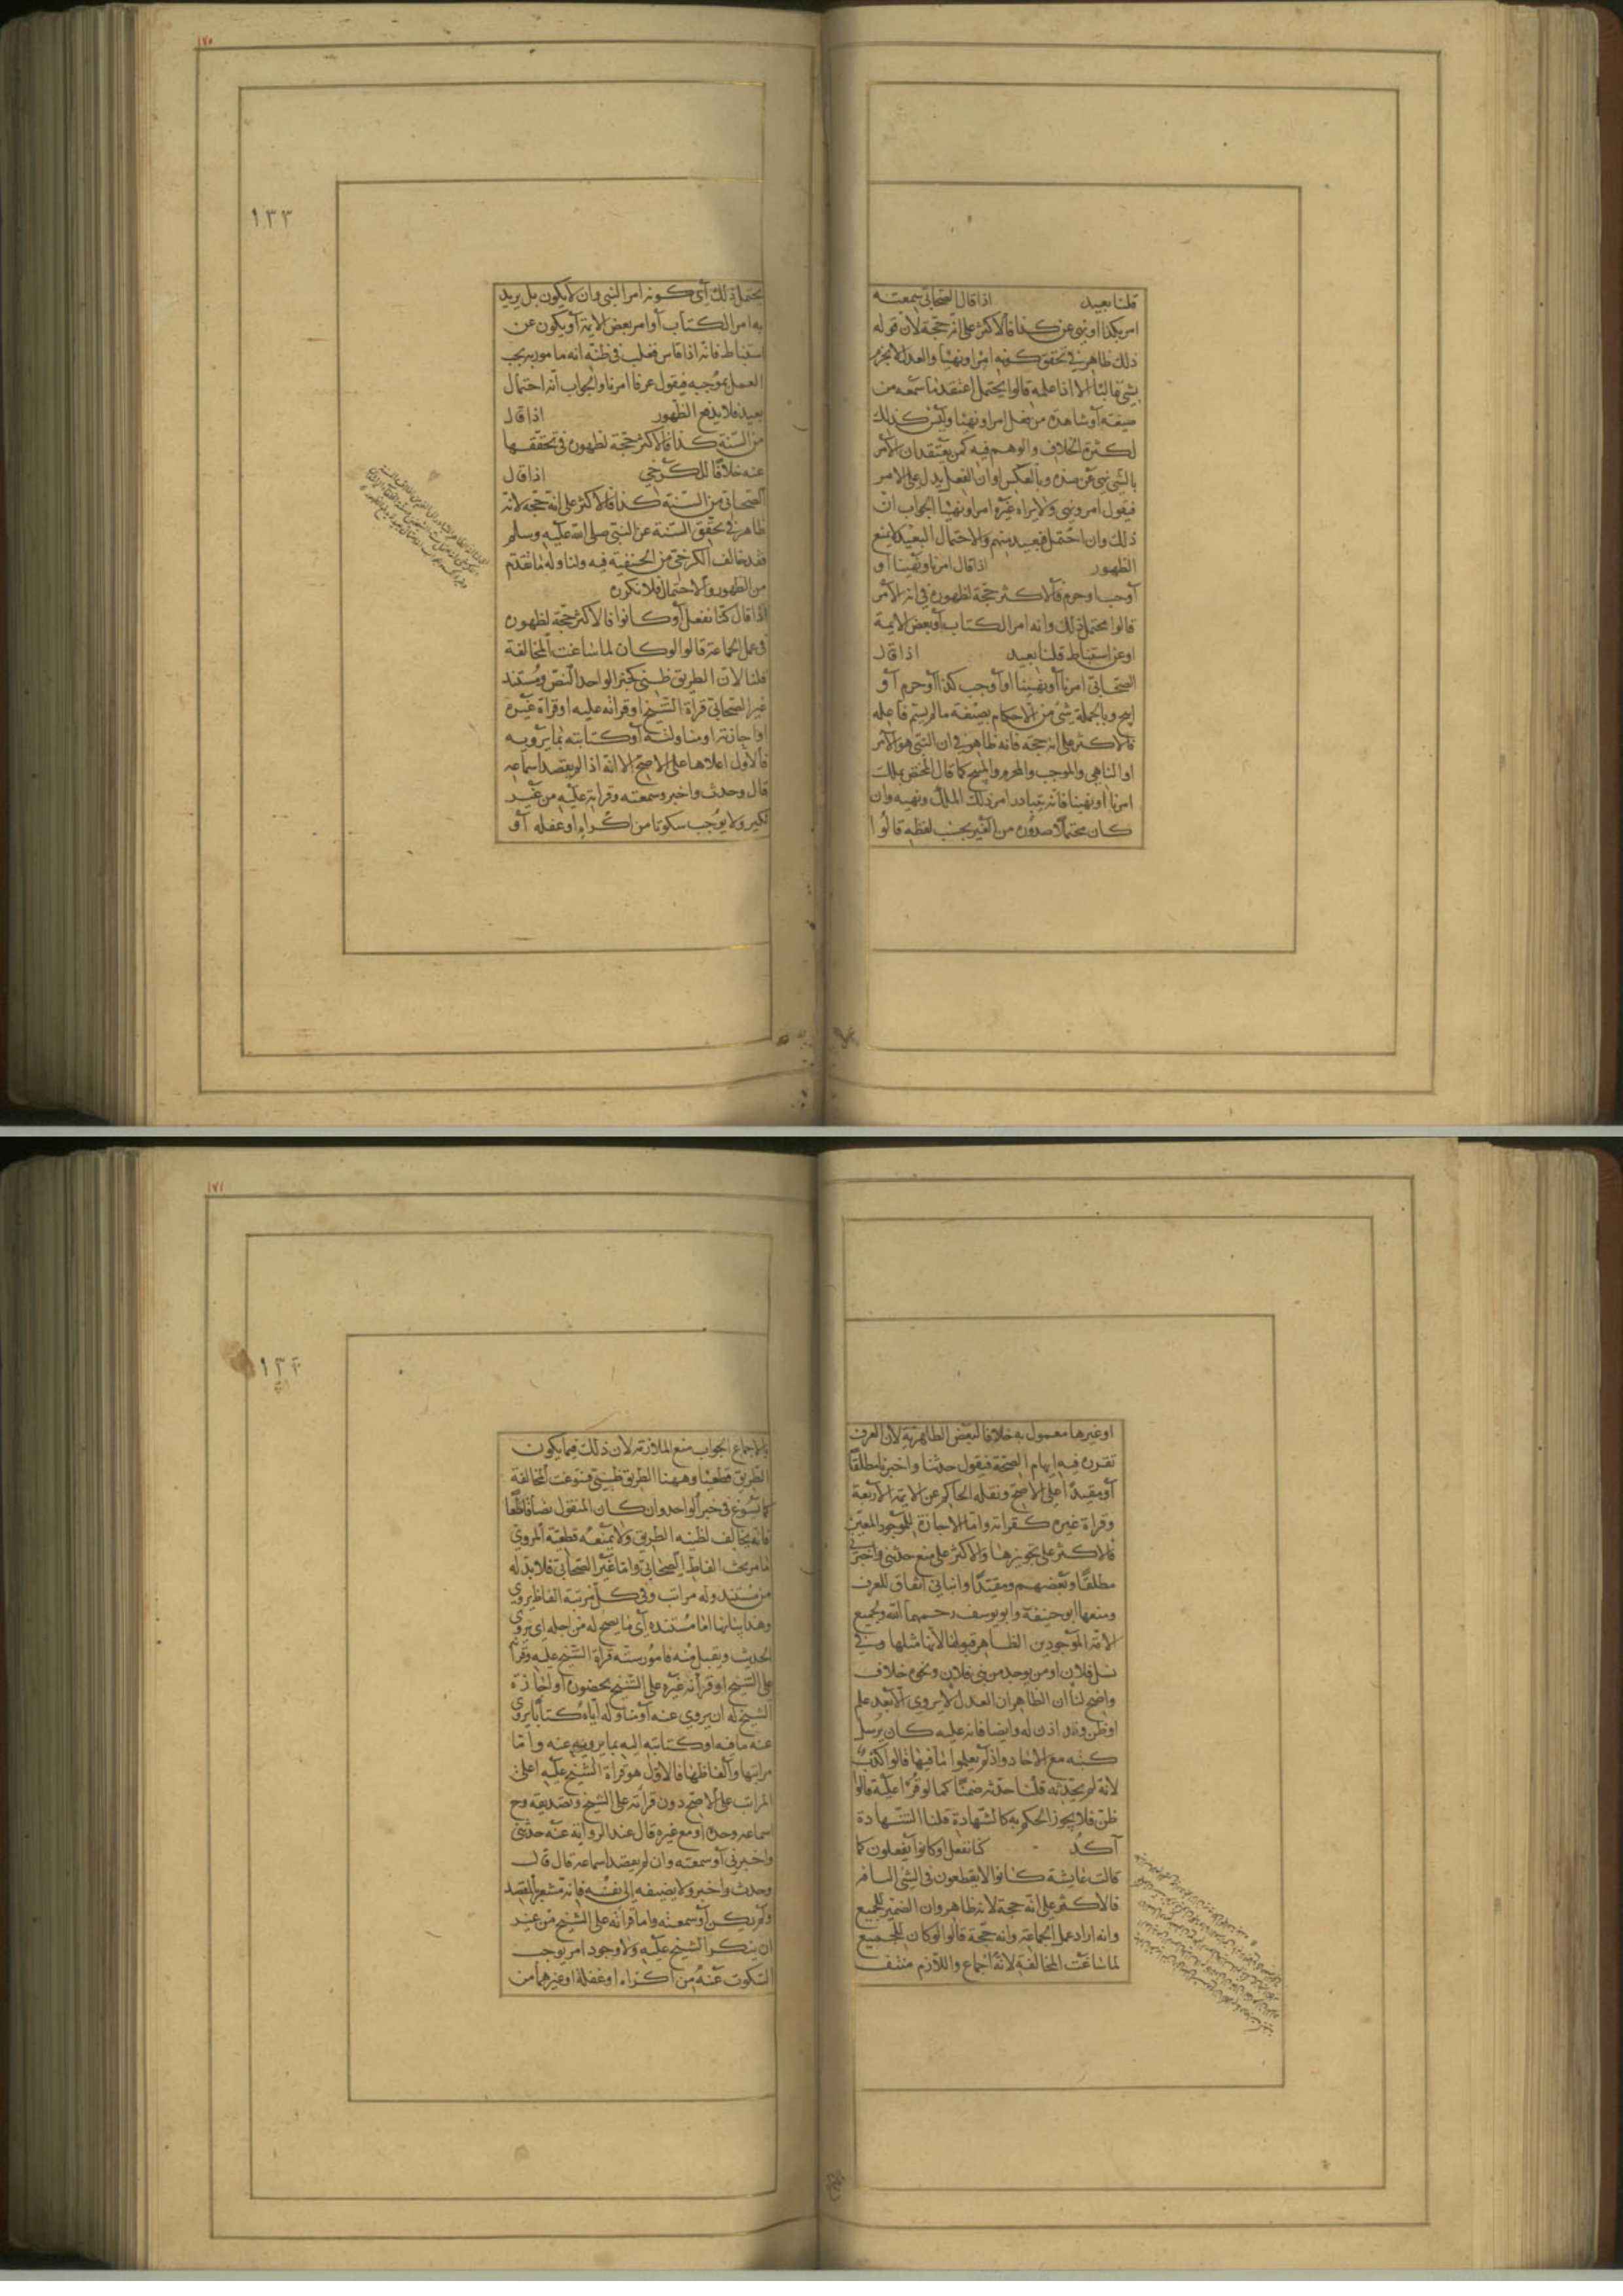 قلنا بعيد اذا قال الصحابي سمعته
امر بكذا او نهى عن كذا فالاكثر على انه حجة لان قوله
ذلك ظاهر في تحقق كونه امرا ونهيا والعدل لا يجزم
بشي غالبا الا اذا علمه قالوا يحتمل اعتقد ما سمعه من
صيغته او شاهده من فعل امرا ونهيا وليس كذلك
لكثرة الخلاف والوهم فيه كمن يعتقد ان الامر
بالشي نهي عن ضده وبالعكس او ان الفعل يدل على الامر
فيقول امر ونهى ولا يراه غيره امرا ونهيا الجواب ان
ذلك وان احتمل فبعيد منهم والاحتمال البعيد لا يمنع
الظهور اذا قال امرنا او نهينا او
اوجب او حرم فالاكثر حجة لظهوره في انه الامر
قالوا محتمل ذلك وانه امر الكتاب او بعض الايمة
او عن استنباط قلنا بعيد اذا قال
الصحابي امرنا او نهينا او اوجب كذا او حرم او
ابيح وبالجملة شي من الاحكام بصيغة ما لم يسم فاعله
فالاكثر على انه حجة فانه ظاهر في ان النبي هو الامر
او الناهي والموجب والمحرم والمبيح كما قال المختص بملك
امرنا او نهينا فانه يتبادر امر ذلك الملك ونهيه وان
كان محتملا صدوره من الغير بحسب لفظه قالوا
١٧٠
١٣٣
يحتمل ذلك اي كونه امر النبي وان لا يكون بل يريد
به امر الكتاب او امر بعض الايمة او يكون عن
استنباط فانه اذا قاس فغلب في ظنه انه مامور به يجب
العمل بموجبه فيقول عرفا امرنا والجواب انه احتمال
بعيد فلا يدفع الظهور اذا قال
من السنة كذا فالاكثر حجة لظهوره في تحققها
عنه خلافا للكرخي اذا قال
الصحابي من السنة كذا فالاكثر على انه حجة لانه
ظاهر في تحقق السنة عن النبي صلى الله عليه وسلم
فقد خالف الكرخي من الحنفية فيه ولنا وله ما تقدم
من الظهور والاحتمال فلا نكرره
اذا قال كنا نفعل او كانوا فالاكثر حجة لظهوره
في عمل الجماعة قالوا لو كان لما ساغت المخالفة
قلنا لان الطريق ظني كخبر الواحد النص ومستند
غير الصحابي قراة الشيخ او قراته عليه او قراة غيره
او اجازته او مناولته او كتابته بما يرويه
فالاول اعلاها على الاصح الا انه اذا لم يقصد اسماعه
قال وحدث واخبر وسمعته وقراته عليه من غير
نكير ولا يوجب سكوتا من اكراه او غفلة او
او غيرها معمول به خلافا لبعض الظاهرية لان العرف
تقرر فيه ايهام الصحة فيقول حدثنا واخبرنا مطلقا
او مقيدا على الاصح ونقله الحاكم عن الايمة الاربعة
وقراة غيره كقراته واما الاجازة للموجود المعين
فالاكثر على تجويزها والاكثر على منع حدثني واخبرني
مطلقا وبعضهم ومقيدا وانباني اتفاق للعرف
ومنعها ابو حنيفة وابو يوسف رحمهما الله ولجميع
الامة الموجودين الظاهر قبولها لانها مثلها وفي
نسل فلان او من يوجد من بني فلان ونحوه خلاف
واضح لنا ان الظاهر ان العدل لا يروي الا بعد علم
او ظن وقد اذن له وايضا فانه عليه كان يرسل
كتبه مع الاحاد واذ لم يعلموا ما فيها قالوا كذب
لانه لم يحدثه قلنا حدثه ضمنا كما لو قرئ عليه قالوا
ظن فلا يجوز الحكم به كالشهادة قلنا الشهادة
آكد كنا نفعل او كانوا يفعلون كما
قالت عايشة كانوا لا يقطعون في الشي التافه
فالاكثر على انه حجة لانه ظاهر وان الضمير للجميع
وانه اراد عمل الجماعة وانه حجة قالوا لو كان للجميع
لما ساغت المخالفة لانه اجماع واللازم منتف
١٧١
١٣٤
بالاجماع الجواب منع الملازمة لان ذلك فيما يكون
الطريق قطعيا وههنا الطريق ظني فسوغت المخالفة
كما تسوغ في خبر الواحد وان كان المنقول نصا قاطعا
فانه يخالف لظنية الطريق ولا يمنعه قطعية المروي
ما مر بحث الفاظ الصحابي واما غير الصحابي فلا بد له
من مستند وله مراتب وفي كل مرتبة الفاظ يروي
وهذا بيانها اما مستنده اي ما يصح له من اجله ان يروي
الحديث ويقبل منه فامور ستة قراة الشيخ عليه وقراته
على الشيخ او قراته غيره على الشيخ بحضوره او اجازة
الشيخ له ان يروي عنه او مناولة اياه كتابا يروي
عنه ما فيه او كتابته اليه بما يرويه عنه واما
مراتبها والفاظها فالاول هو قراة الشيخ عليه اعلى
المراتب على الاصح دون قراته على الشيخ وتصديقه وح
اسماعه وحده او مع غيره قال عند الرواية عنه حدثني
واخبرني او سمعته وان لم يقصد اسماعه قال قال
وحدث واخبر ولا يضيفه الى نفسه فانه مشعر بالقصد
ولم يكن او سمعته واما قراته على الشيخ من غير
ان ينكر الشيخ عليه ولا وجود امر يوجب
السكوت عنه من اكراه او غفلة او غيرهما من